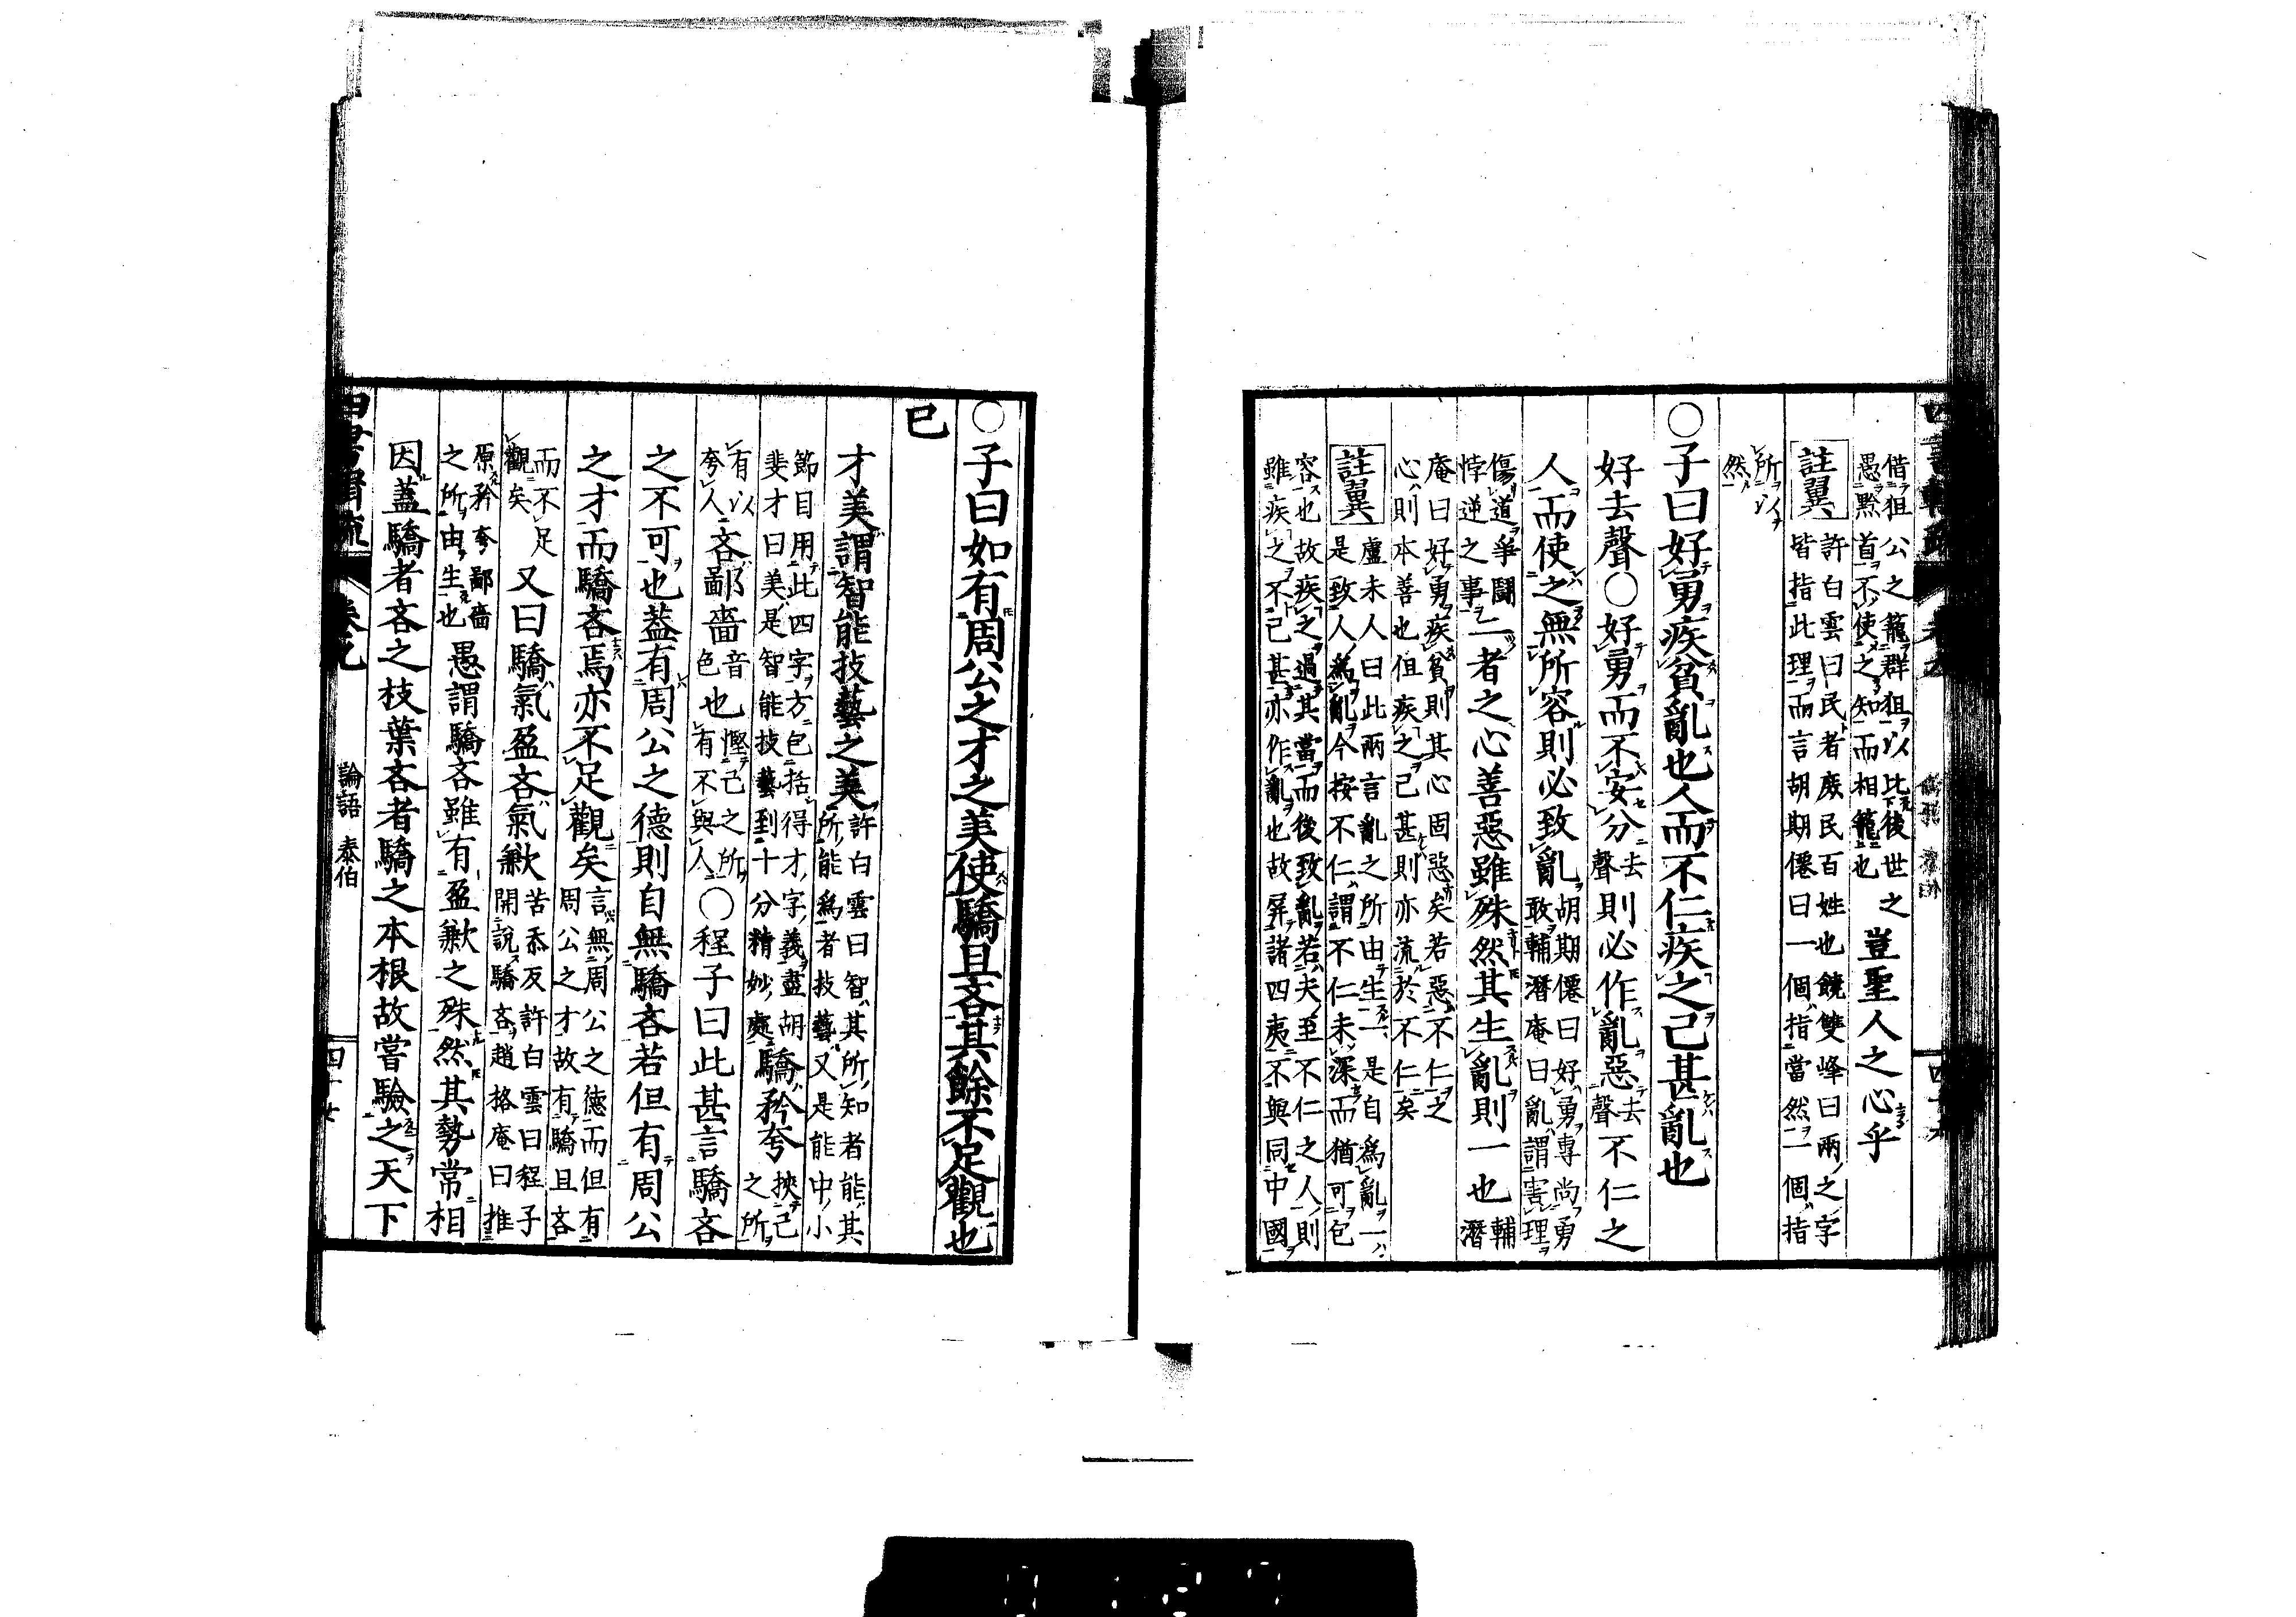 借狙公之籠群狙以比後世之愚黔首不使之知而相籠也豈聖人之心乎
註翼許白雲曰民者庶民百姓也饒雙峰曰兩之字皆指此理而言胡期僊曰一個指當然一個指
所以然
○子曰好勇疾貧亂也人而不仁疾之已甚亂也
好去聲○好勇而不安分去聲則必作亂惡去聲不仁之
人而使之無所容則必致亂胡期僊曰好勇專尚勇敢輔潛庵曰亂謂害理
傷道爭鬪悖逆之事二者之心善惡雖殊然其生亂則一也輔潛
庵曰好勇疾貧則其心固惡矣若惡不仁之心則本善也但疾之已甚則亦流於不仁矣
註翼盧未人曰此兩言亂之所由生一是自爲亂一是致人爲亂今按不仁謂不仁未深而猶可包
容也故疾之過其當而後致亂若夫至不仁之人則雖疾之不已甚亦作亂也故屏諸四夷不與同中國
○子曰如有周公之才之美使驕且吝其餘不足觀也
已
才美謂智能技藝之美許白雲曰智其所知者能其所能爲者技藝又是能中小
節目用此四字方包括得才字義盡胡斐才曰美是智能技藝到十分精妙處驕矜夸挾己之所
有以夸人吝鄙嗇音色也慳己之所有不與人○程子曰此甚言驕吝
之不可也蓋有周公之德則自無驕吝若但有周公
之才而驕吝焉亦不足觀矣言無周公之德而但有周公之才故有驕且吝
而不足觀矣又曰驕氣盈吝氣歉苦忝反許白雲曰程子開說驕吝趙格庵曰推
原矜夸鄙嗇之所由生也愚謂驕吝雖有盈歉之殊然其勢常相
因蓋驕者吝之枝葉吝者驕之本根故嘗驗之天下
論語 泰伯